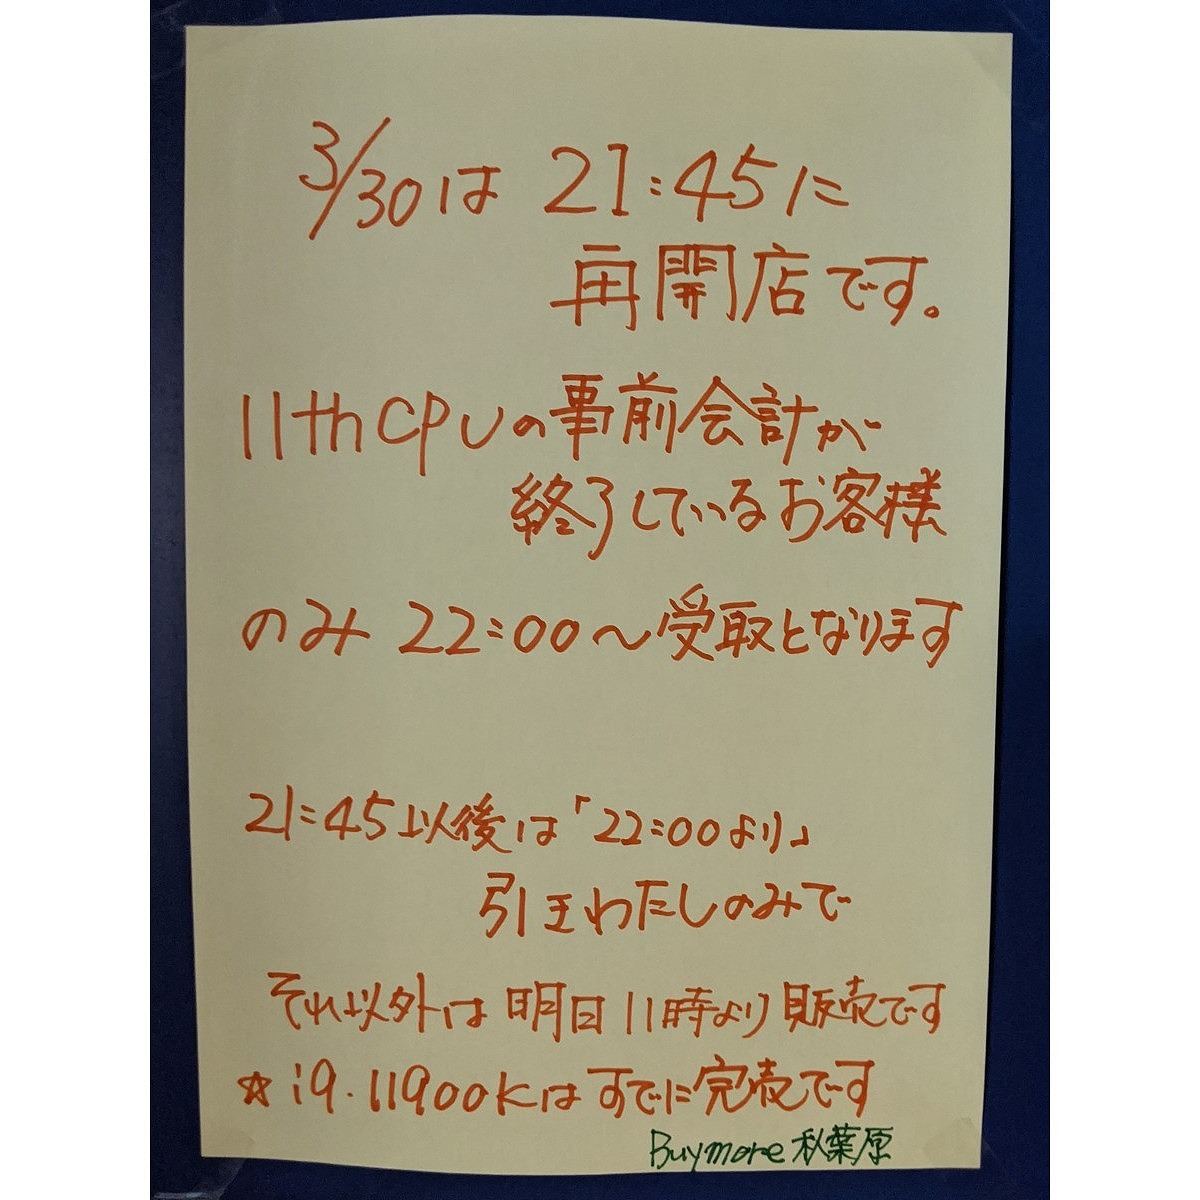 3/30は 21:45に
再開店です。
11th CPUの事前会計が
終了しているお客様
のみ 22:00〜受取となります
21:45以後は「22:00より」
引きわたしのみで
それ以外は明日11時より販売です
☆i9.11900Kはすでに完売です
Buymore秋葉原